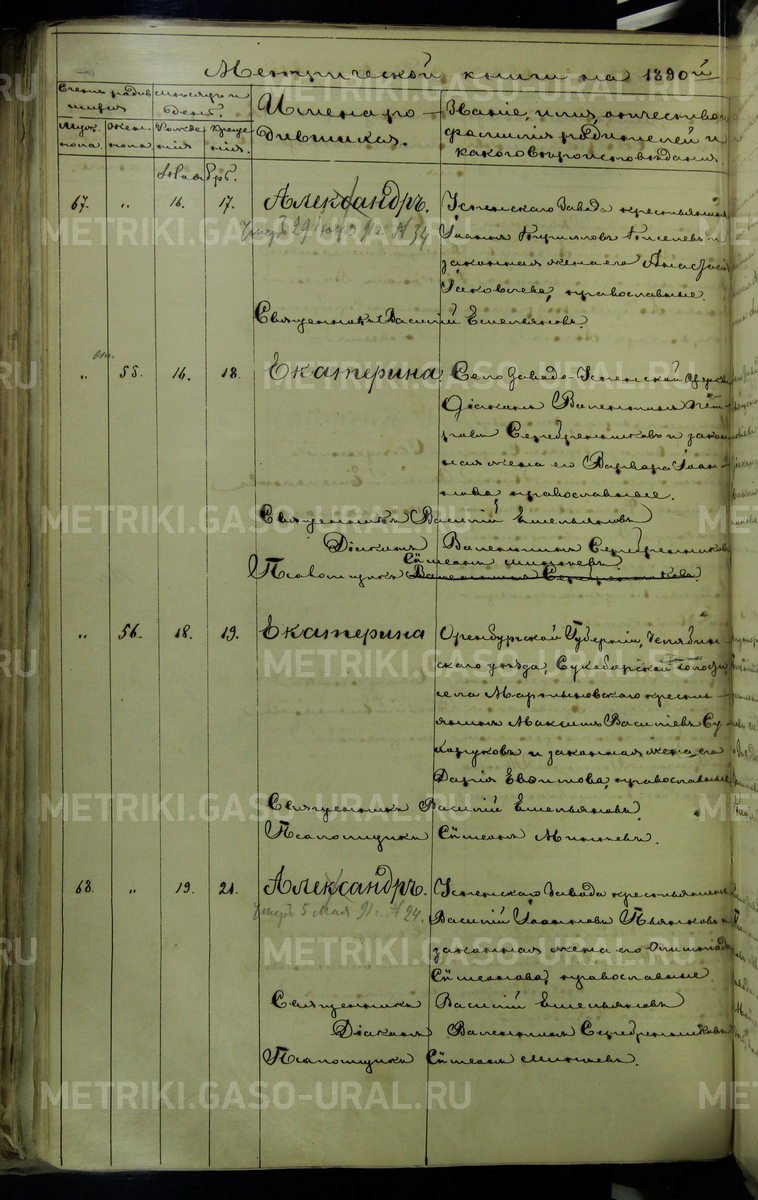 Метрической книги на 1890й
Счетъ родив-
шихся
Муж.
пола
Жен-
пола
мѣсяцъ и
день.
Рожде-
нія
Креще-
нія.
Имена ро-
дившихся.
Званіе, имя, отчество
фамилія родителей и
какого вѣроисповѣданія
Ноябрь.
67. „ 16. 17. Александръ.
Умеръ 29 91 г. № 34
Успенскаго Завода крестьянинъ
Іоаннъ Кирилловъ Киселевъ и
законная жена его Анастасія
Іаковлева, православные.
Священникъ Василій Емельяновъ.
„ 55. 16. 18. Екатерина.
Село Завода-Успенской церкви
Діаконъ Валентинъ Пет-
ровъ Серебренниковъ и закон-
ная жена его Варвара Іоан-
нова, православные.
Священникъ Василій Емельяновъ
Діаконъ Валентинъ Серебренниковъ
Псаломщикъ Валентинъ Серебренниковъ
Сѵмеонъ Минѣевъ
„ 56. 18. 19. Екатерина
Оренбургской Губерніи, Челябин-
скаго уѣзда, Сухоборской Волости,
села Мартыновскаго кресть-
янинъ Максимъ Василіевъ Су-
хоруковъ и законная жена его
Дарія Евѳимова, православные
Священникъ Василій Емельяновъ
Псаломщикъ Сѵмеонъ Минѣевъ.
68. „ 19. 21. Александръ.
Умеръ 5 Мая 91 г. № 24.
Успенскаго Завода крестьянинъ
Василій Іоанновъ Пьянковъ и
законная жена его Олимпіада
Сѵмеонова, православные.
Священникъ Василій Емельяновъ
Діаконъ Валентинъ Серебренниковъ
Псаломщикъ Сѵмеонъ Минѣевъ.
METRIKI.GASO-URAL.RU